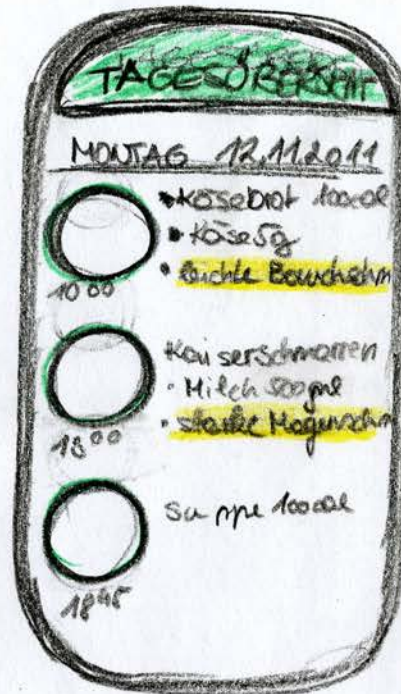 TAGESÜBERSICHT
MONTAG 12.11.2011
• Käsebrot 100cal
• Käse 5g
• leichte Bauchschm
10 00
Kaiserschmarren
• Milch 500ml
• starke Magenschm
13 00
Suppe 100cal
18 45